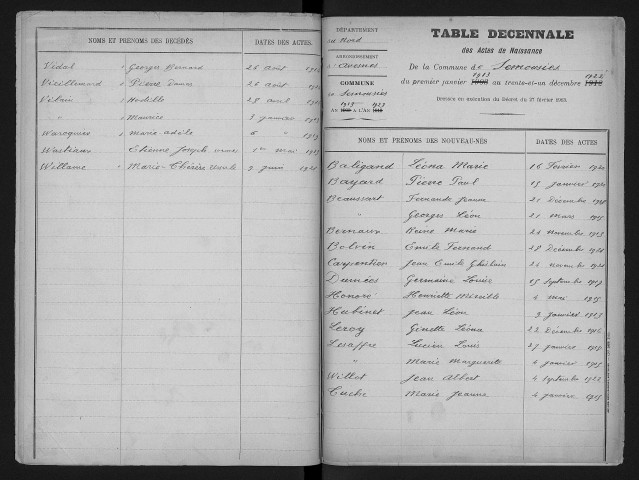 NOMS ET PRÉNOMS DES DÉCÉDÉS DATES DES ACTES.
Vidal Georges Bernard 26 août
Vieillemard Pierre 26 août
Vilain 25 avril
" Maurice 3 janvier
Warognier Marie Adèle 6 "
Wastiaux Etienne Joseph 1er mai
Willame Marie-Thérèse 9 juin
DÉPARTEMENT
du Nord
ARRONDISSEMENT
d'Avesnes
COMMUNE
de Semousies
1913 1923
AN A L'AN
TABLE DÉCENNALE
des Actes de Naissance
De la Commune de Semousies
1913 1922
du premier janvier au trente-et-un décembre
Dressée en exécution du Décret du
NOMS ET PRÉNOMS DES NOUVEAU-NÉS DATES DES ACTES.
Baligand Léona Marie 16 Février
Bayard Pierre Paul 15 janvier
Beaussart Fernande Jeanne 21 Décembre
" Georges Léon 21 mars
Bernaux Reine Marie 26 Novembre
Bolvin Emile Fernand 28 Décembre
Carpentier Jean Emile Ghislain 24 novembre
Dumées Germaine Louise 15 Septembre
Honoré Henriette Mireille 4 mai
Hubinet Jean Léon 9 janvier
Leroy Ginette Léona 22 Décembre
Lesaffre Lucien Louis 27 janvier
" Marie Marguerite 4 janvier
Willot Jean Albert 4 Septembre 1922
Cuche Marie Jeanne 4 janvier